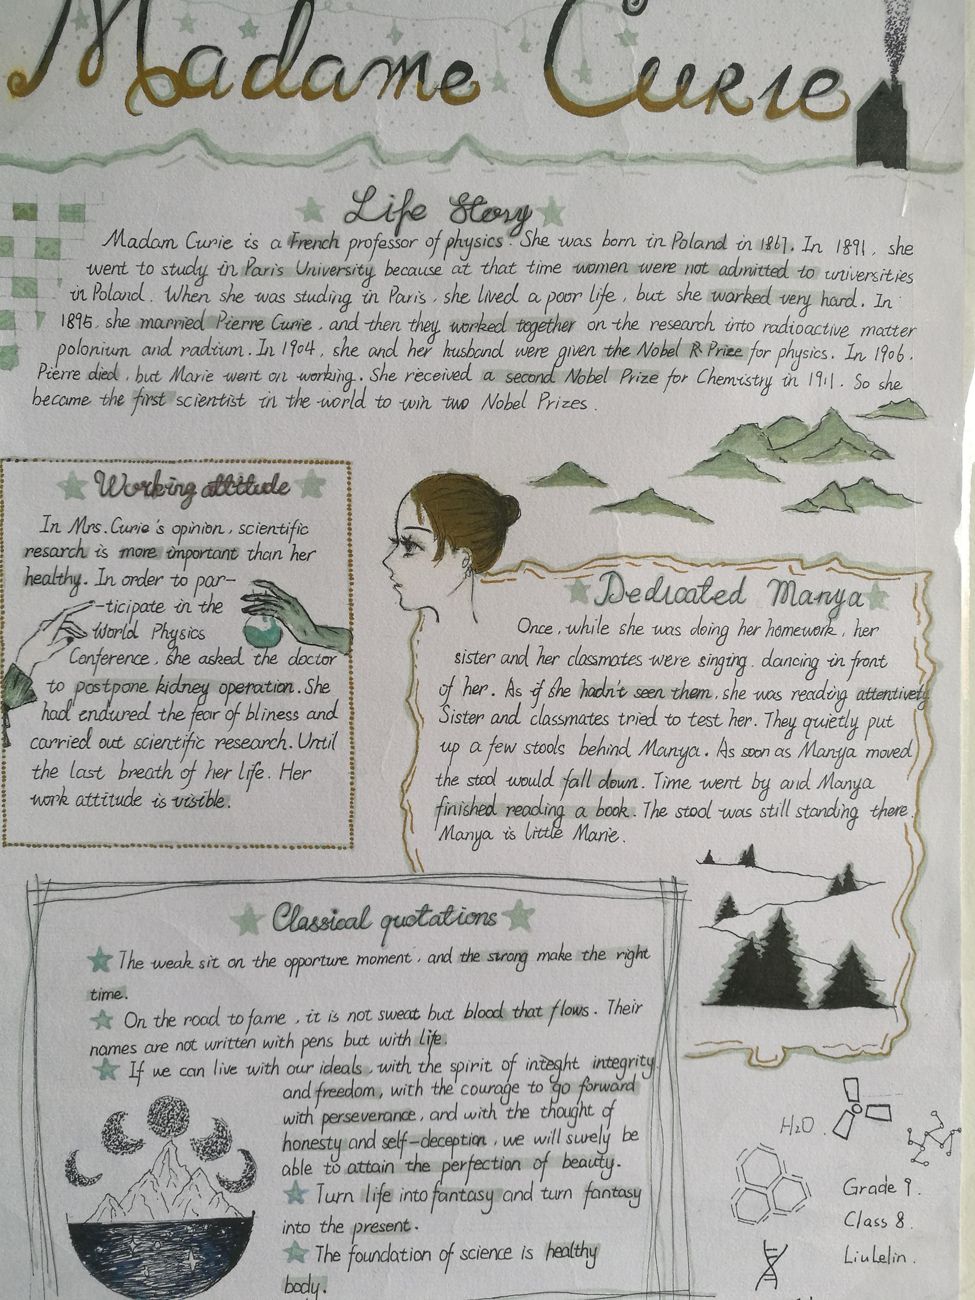 Madame Curie
Life Story
Madam Curie is a French professor of physics. She was born in Poland in 1867. In 1891, she
went to study in Paris University because at that time women were not admitted to universities
in Poland. When she was studing in Paris, she lived a poor life, but she warked very hard. In
1895, she married Pierre Curie, and then they worked together on the research into radioactive matter
polonium and radium. In 1904, she and her husband were given the Nobel R Prize for physics. In 1906,
Pierre died, but Marie went on working. She received a second Nobel Prize for Chemistry in 1911. So she
became the first scientist in the world to win two Nobel Prizes.
Working attitude
In Mrs. Curie's opinion, scientific
resarch is more important than her
healthy. In order to par-
-ticipate in the
World Physics
Conference, she asked the doctor
to postpone kidney operation. She
had endured the fear of bliness and
carried out scientific research. Until
the last breath of her life. Her
work attitude is visible.
Dedicated Manya
Once, while she was doing her homework, her
sister and her classmates were singing, dancing in front
of her. As if she hadn't seen them, she was reading attentively
Sister and classmates tried to test her. They quietly put
up a few stools behind Manya. As soon as Manya moved
the stool would fall down. Time went by and Manya
finished reading a book. The stool was still standing there.
Manya is little Marie.
Classical quotations
The weak sit on the opporture moment, and the strong make the right
time.
On the road to fame, it is not sweat but blood that flows. Their
names are not written with pens but with life.
If we can live with our ideals, with the spirit of integht integrity
and freedom, with the courage to go forward
with perseverance, and with the thought of
honesty and self-deception, we will surely be
able to attain the perfection of beauty.
Turn life into fantasy and turn fantasy
into the present.
The foundation of science is healthy
body.
H2O
Grade 9.
Class 8.
Liu Lelin.